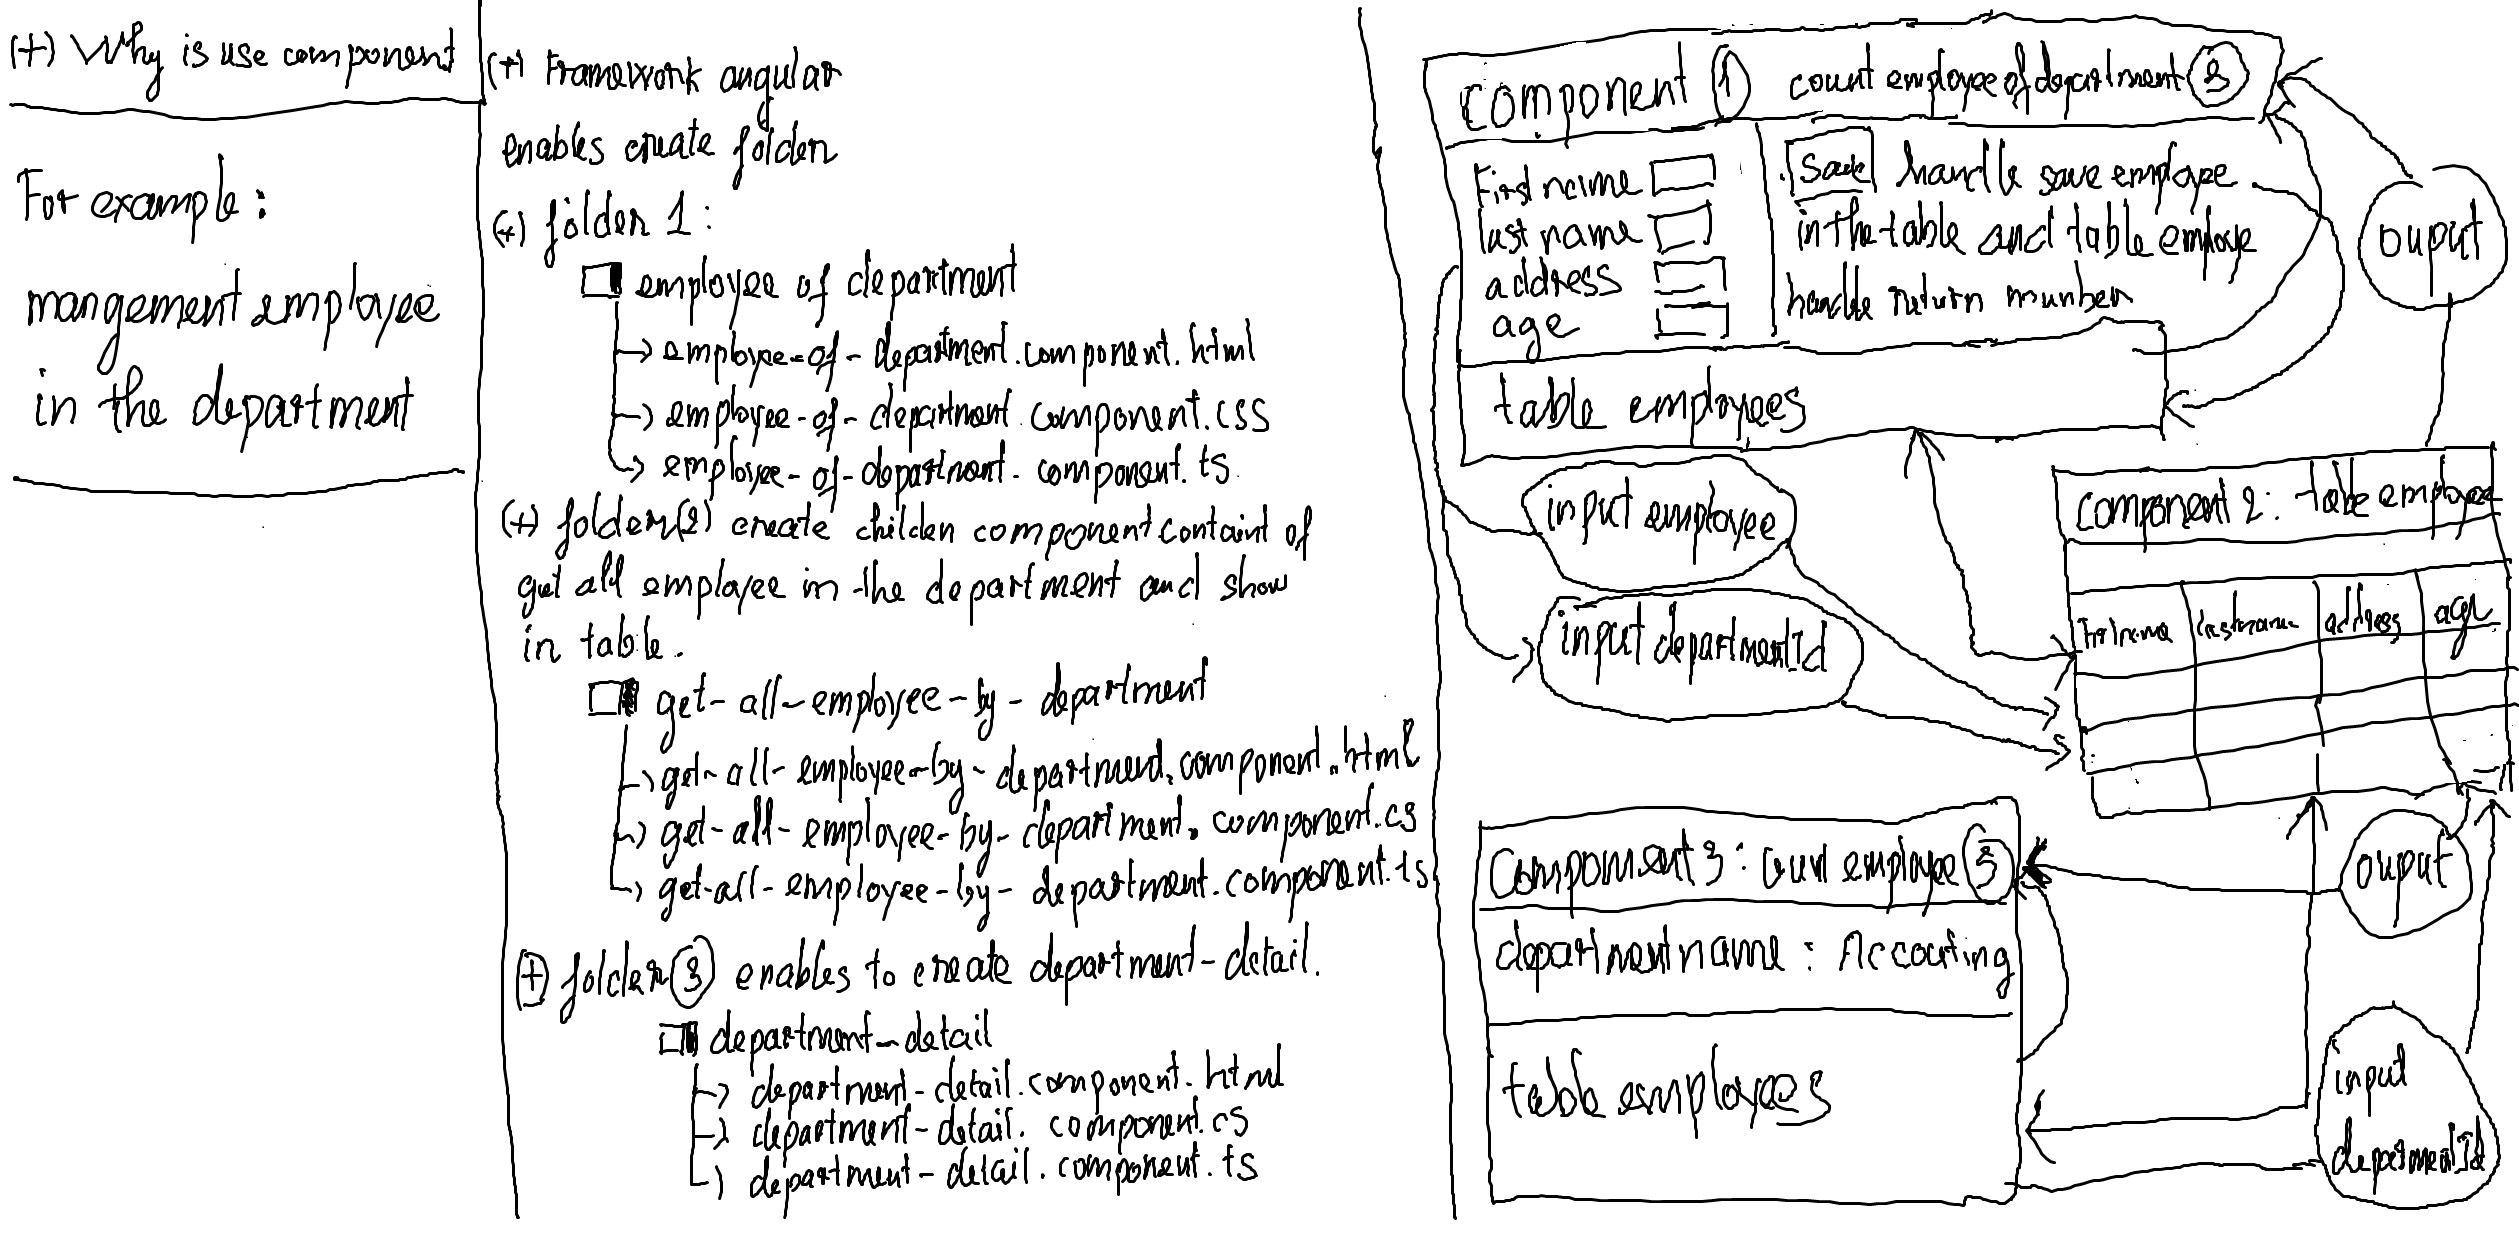 (+) Why is use component
For example :
mangement employee
in the department
(+) Framework angular
enables create folder
(+) folder 1 :
employee of department
employee-of-department.component.html
employee-of-department.component.css
employee-of-department.component.ts
(+) folder(2) create childen component containt of
get all employee in the department and show
in table.
get-all-employee-by-department
get-all-employee-by-department.component.html
get-all-employee-by-department.component.cs
get-all-employee-by-department.component.ts
(+) folder (3) enables to create department-detail.
department-detail
department-detail.component.html
department-detail.component.cs
department-detail.component.ts
component 1 count employee of department
First name
last name
address
age
Save handle save employee
in the table and table employe
handle return number
table employees
ouput
input employee
input departmentId
component 2: table employee
lastname address age
ouput
Component 3 : employee
departmentname : Accouting
table employees
input
departmentId